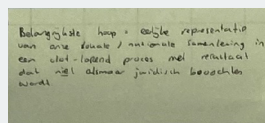 Belangrijkste hoop: eerlijke representatie
van onze lokale / nationale samenleving in
een vlot-lopend proces met resultaat
dat niet alsmaar juridisch bevochten
wordt.